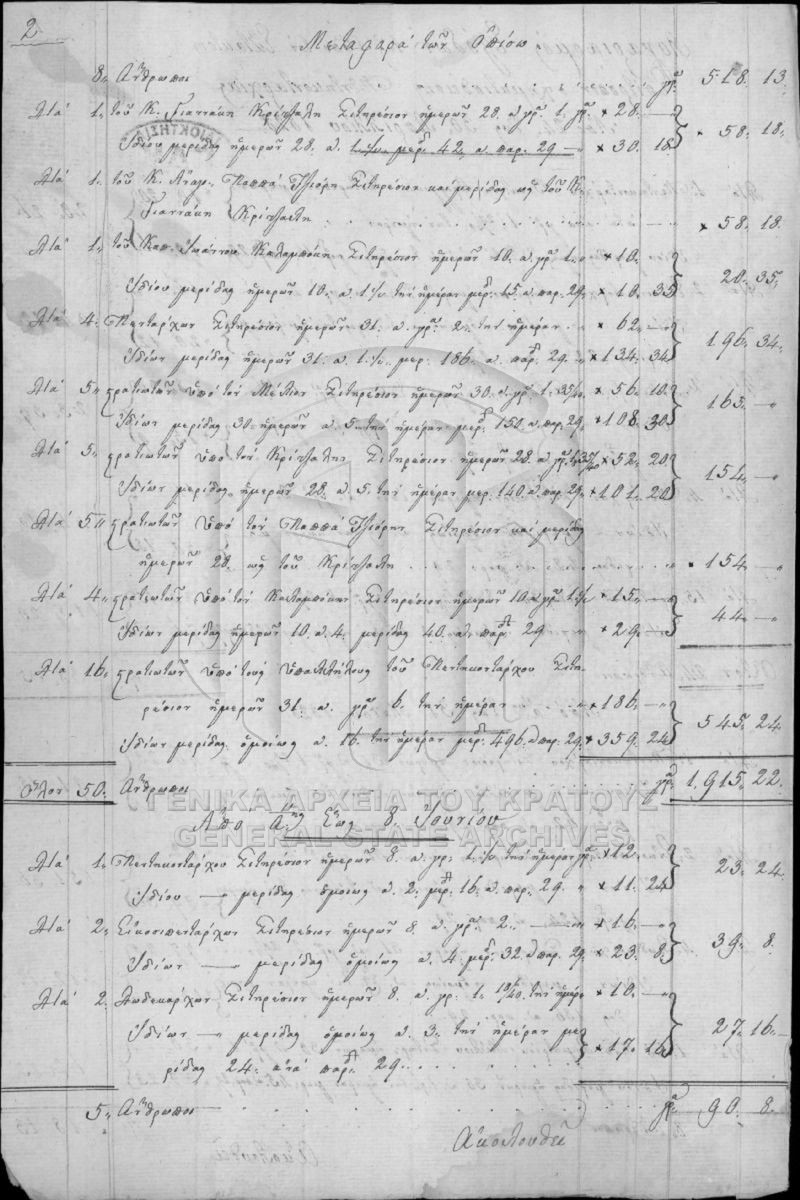 2
Μεταφορά τῶν Ὄπίσω
8,, ἄνθρωποι γρ. 518. 13.
Διά 1. τοῦ Κ. Γιαννάκη Κρίτζαλη Σιτηρέσιον ἡμερῶν 28. α γρ. 1. γρ. × 28. —
Ἰδίου μερίδας ἡμερῶν 28. α. 1 1/2 μερ. 42. α παρ. 29 — × 30. 18. × 58. 18.
Διά 1. τοῦ Κ. Ἀναγ. Παππᾶ Τζιόρη Σιτηρέσιον καί μερίδας ὡς τοῦ Κ.
Γιαννάκη Κρίτζαλη × 58. 18.
Διά 1. τοῦ Καπ. Ἰωάννου Καλαμπόκη Σιτηρέσιον ἡμερῶν 10. α γρ. 1. × 10. —
Ἰδίου μερίδας ἡμερῶν 10. α 1 1/2 τήν ἡμέραν μερ. 15. α παρ. 29. × 10. 35 20. 35.
Διά 4. Πεντάρχων Σιτηρέσιον ἡμερῶν 31. α γρ. 2. τήν ἡμέραν × 62. —
Ἰδίων μερίδας ἡμερῶν 31. α. 1 1/2. μερ. 186. α παρ. 29 × 134. 34 196. 34.
Διά 5,, στρατιωτῶν ὑπό τόν Σιτηρέσιον ἡμερῶν 30. α γρ. 1. 35/40. × 56. 10.
Ἰδίων μερίδας 30. ἡμερῶν α 5. τήν ἡμέραν μερ. 150. α παρ. 29. × 108. 30 165. —
Διά 5. στρατιωτῶν ὑπό τόν Κρίτζαλην Σιτηρέσιον ἡμερῶν 28. α γρ. × 52. 20
Ἰδίων μερίδας ἡμερῶν 28. α 5. τήν ἡμέραν μερ. 140. α παρ. 29. × 101. 20 154. —
Διά 5,, στρατιωτῶν ὑπό τόν Παππᾶ Τζιόρην Σιτηρέσιον καί μερίδας
ἡμερῶν 28. ὡς τοῦ Κρίτζαλη × 154. —
Διά 4,, στρατιωτῶν ὑπό τόν Καλαμπόκην Σιτηρέσιον ἡμερῶν 10. α γρ. 1 1/2 × 15. —
Ἰδίων μερίδας ἡμερῶν 10. α. 4. μερίδας 40. α παρ. 29 × 29. — 44. —
Διά 16. στρατιωτῶν ὑπό τούς ὑπαλλήλους τοῦ Πεντηκοντάρχου Σιτη-
ρέσιον ἡμερῶν 31. α γρ. 6. τήν ἡμέραν × 186. —
Ἰδίων μερίδας ὁμοίως α. 16. τήν ἡμέραν μερ. 496. α παρ. 29. × 359. 24 545. 24.
ὅλον 50. ἄνθρωποι γρ. 1,915. 22.
ΓΕΝΙΚΑ ΑΡΧΕΙΑ ΤΟΥ ΚΡΑΤΟΥΣ
Ἀπό ἕως 8. Ἰουνίου
GENERAL STATE ARCHIVES
Διά 1. Πεντηκοντάρχου Σιτηρέσιον ἡμερῶν 8. α γρ. 1 1/2 τήν ἡμέραν γρ. × 12. —
Ἰδίου — μερίδας ὁμοίως α. 2. μερ. 16. α. παρ. 29. × 11. 24 23. 24.
Διά 2. Εἰκοσιπεντάρχων Σιτηρέσιον ἡμερῶν 8. α. γρ. 2. × 16. —
Ἰδίων — μερίδας ὁμοίως α. 4. μερ. 32. α παρ. 29. × 23. 8. 39. 8.
Διά 2. Δωδεκάρχων Σιτηρέσιον ἡμερῶν 8. α. γρ. 1. 10/40. τήν ἡμέρα × 10. —
Ἰδίων — μερίδας ὁμοίως α. 3. τήν ἡμέραν με-
ρίδας 24. ἀνά παρ. 29 × 17. 16 27. 16.
5,, ἄνθρωποι γρ. 90. 8.
Ἀκολουθεῖ